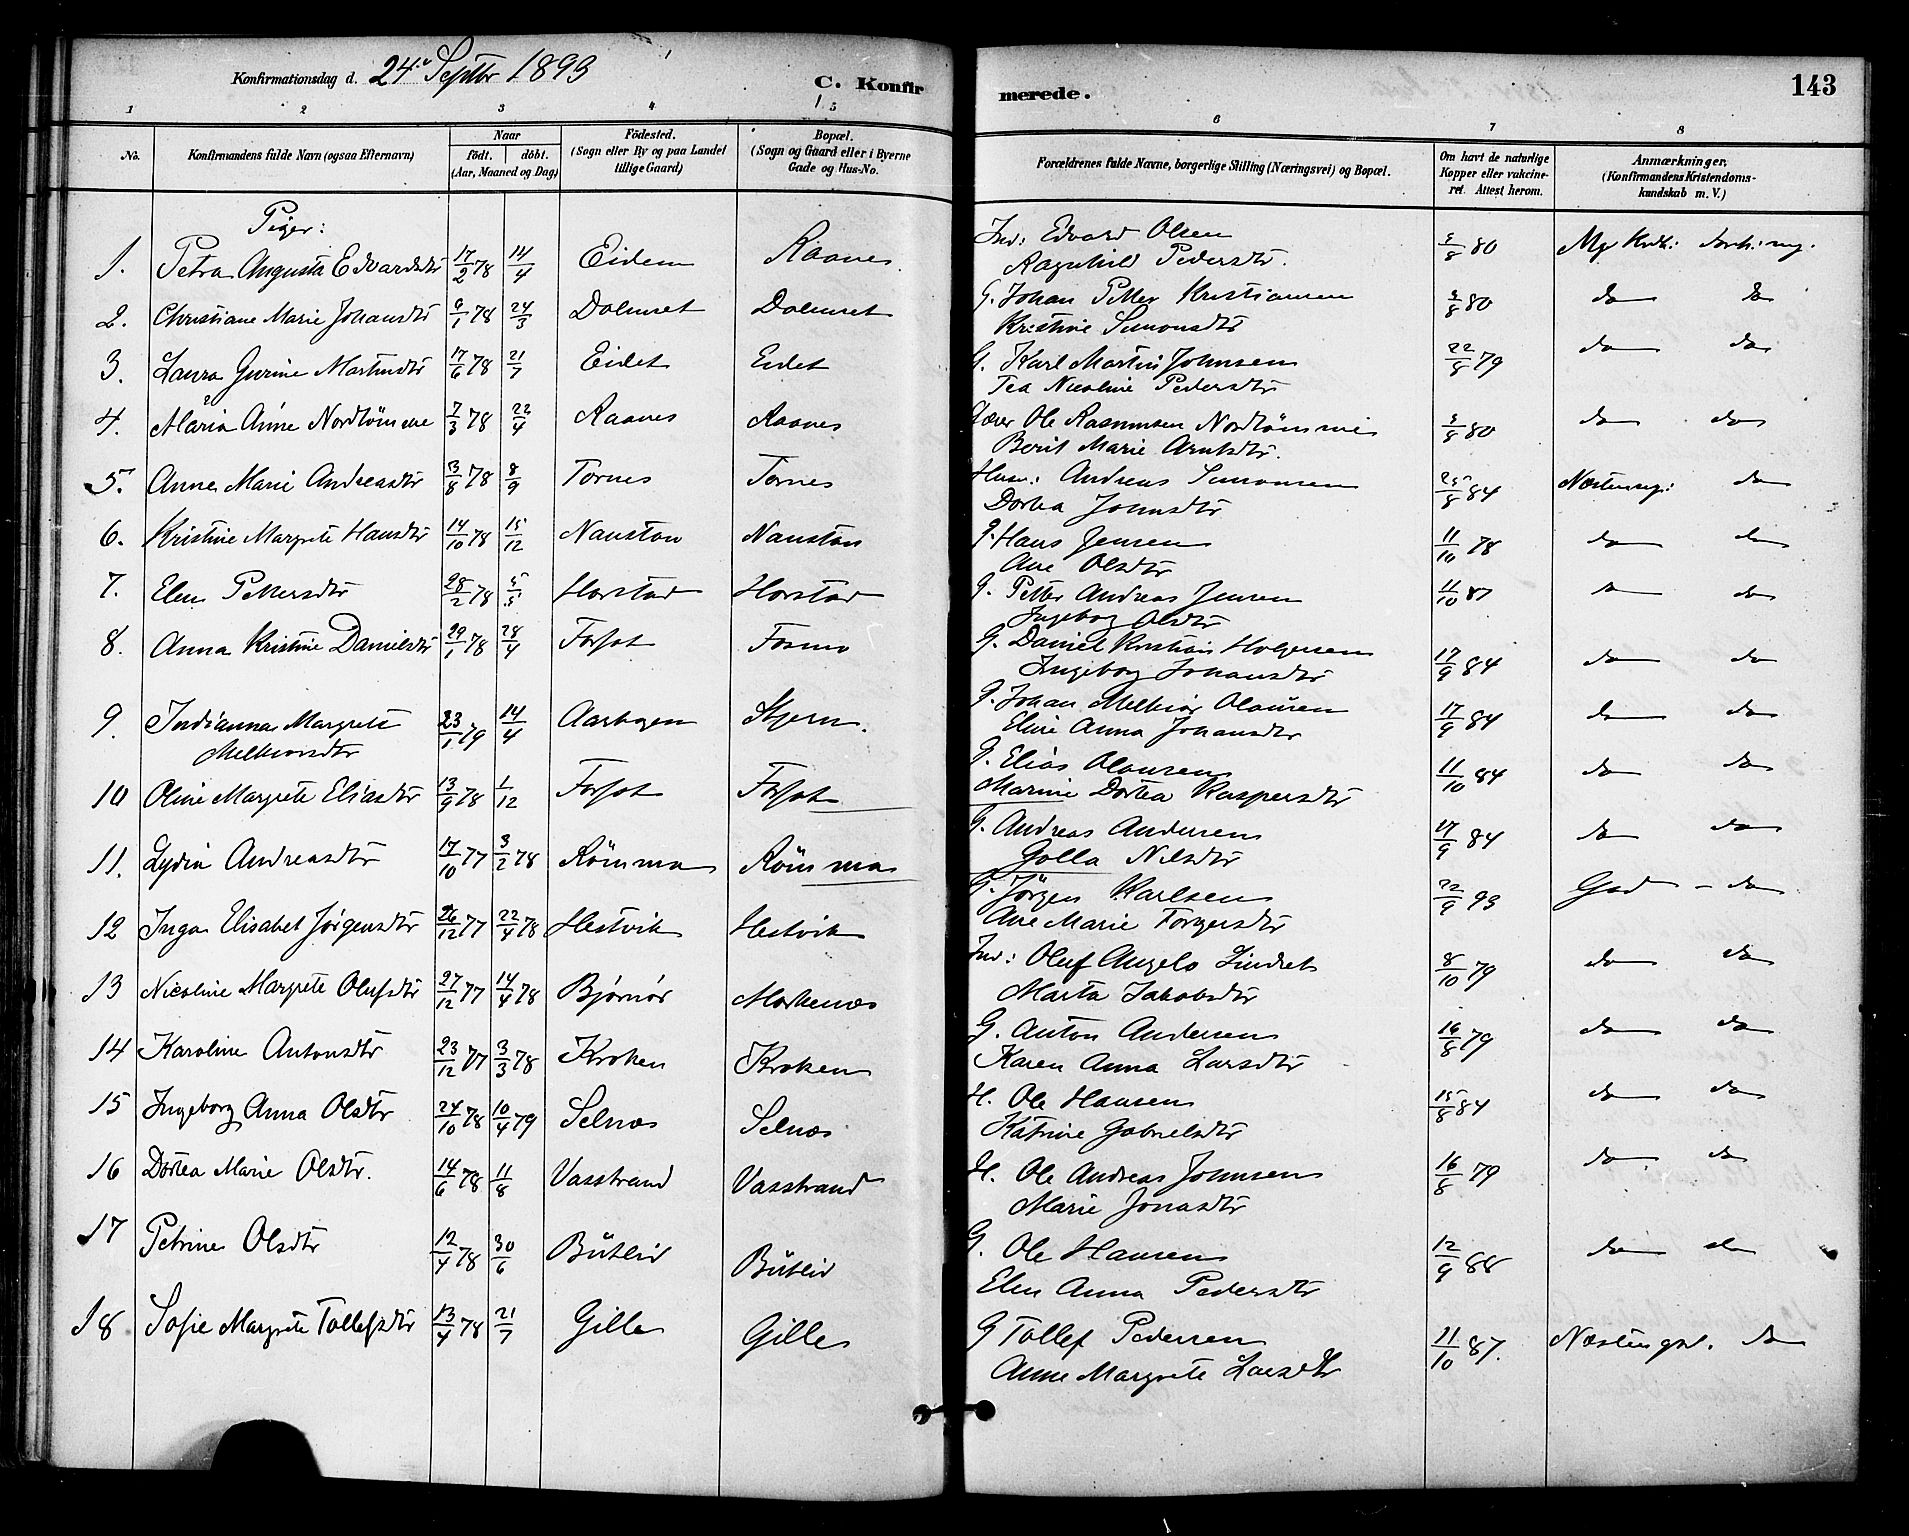 Konfirmationsdag d. 24de Septbr 1893
C. Konfirmerede.
143
1 2 3 4 5 6 7 8
No.
Konfirmandens fulde Navn (ogsaa Efternavn)
Naar
födt. döbt.
(Aar, Maaned og Dag)
Födested.
(Sogn eller By og paa Landet
tillige Gaard)
Bopæl.
(Sogn og Gaard eller i Byerne
Gade og Hus-No.
Forældrenes fulde Navne, borgerlige Stilling (Næringsvei) og Bopæl.
Om havt de naturlige
Kopper eller vakcine-
ret. Attest herom.
Anmærkninger,
(Konfirmandens Kristendoms-
kundskab m. V.)
Piger:
1. Petra Augusta Edvardsdtr 17/2 78 14/4 Eidem Raanes Ind: Edvard Olsen
Ragnhild Pedersdtr. 80
2. Christiane Marie Johansdtr 6/1 78 24/3 Dolmset Dolmset G. Johan Petter Kristiansen 80 do do
Kristine Simonsdtr
3. Laura Gurine Martinsdtr 17/6 78 21/7 Eidet Eidet G. Karl Martin Johnsen 22/8 79 do do
Tea Nicoline Pedersdtr
4. Maria Anne Nordtömme 7/3 78 22/4 Raanes Raanes Lærer Ole Rasmussen Nordtömme 80 do do
Berit Marie Arntsdtr.
5. Anne Marie Andreasdtr 13/8 78 8/9 Tornes Tornes Husm: Andreas Simonsen 25/8 84 do
Dortea Johnsdtr
6. Kristine Margrete Hansdtr 14/10 78 15/12 Nauston Nauston G. Hans Jensen 11/10 78 do do
Ane Olsdtr
7. Elen Pettersdtr 28/2 78 5/5 Horstad Horstad G. Petter Andreas Jensen 11/10 87 do do
Ingebor Olsdtr
8. Anna Kristine Danielsdtr 29/1 78 28/4 Forsot Fosmo G. Daniel Kristian Holgersen 17/9 84 do do
Ingeborg Johansdtr
9. Indianna Margrete 23/1 79 14/4 Aarhogen Stjern. G. Johan Melkior Olausen 17/9 84 do do
Melkiorsdtr Eline Anna Johansdtr
10 Oline Margrete Eliasdtr 13/9 78 1/12 Forsot Forsot G. Elias Olausen 11/10 84 do do
Marine Dortea Kaspersdtr
11. Lydia Andreasdtr 17/10 77 3/2 78 Römma Römma G. Andreas Andersen 17/9 84 do do
Golla Nilsdtr
12 Inga Elisabet Jörgensdtr 26/12 77 22/4 78 Hestvik Hestvik G. Jörgen Karlsen 22/9 93 God - do
Ane Marie Torgersdtr
13 Nicoline Margrete Olufsdtr 27/12 77 14/4 78 Bjørnør Morkenæs Ind: Oluf Angels Lindset 8/10 79 do do
Marta Jakobsdtr
14 Karoline Antonsdtr 23/12 77 3/3 78 Kroken Kroken G. Anton Andersen 16/8 79 do do
Karen Anna Larsdtr
15 Ingeborg Anna Olsdtr 24/10 78 10/4 79 Selnæs Selnæs H. Ole Hansen 15/8 84 do do
Katrine Gabrielsdtr
16 Dortea Marie Olsdtr. 14/6 78 11/8 Vasstrand Vasstrand H. Ole Andreas Johnsen 16/8 79 do do
Marie Jonasdtr
17 Petrine Olsdtr 12/4 78 30/6 Bütleid Bütleid G. Ole Hansen 12/9 88 do do
Elen Anna Pedersdtr
18 Sofie Margrete Tollefsdtr 13/4 78 21/7 Gille Gille G Tollef Pedersen 11/10 87. do
Anne Margrete Larsdtr